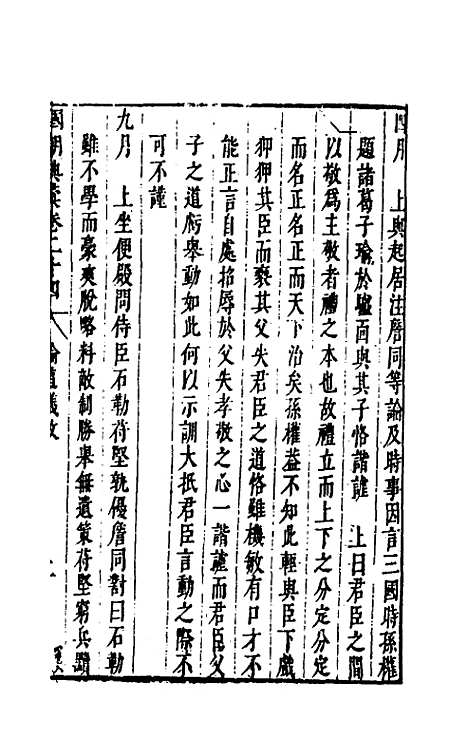 四月　上與起居注詹同等論及時事因言三國時孫權
題諸葛子瑜於驢面與其子恪諧謔　上曰君臣之間
以敬爲主敬者禮之本也故禮立而上下之分定分定
而名正名正而天下治矣孫權蓋不知此輕與臣下戲
狎狎其臣而褻其父失君臣之道恪雖機敏有口才不
能正言自處招辱於父失孝敬之心一諧謔而君臣父
子之道虧舉動如此何以示訓大抵君臣言動之際不
可不謹
九月　上坐便殿問侍臣石勒苻堅孰優詹同對曰石勒
雖不學而豪爽脫略料敵制勝舉無遺策苻堅窮兵黷
國朝典彙卷二十四　論道議政